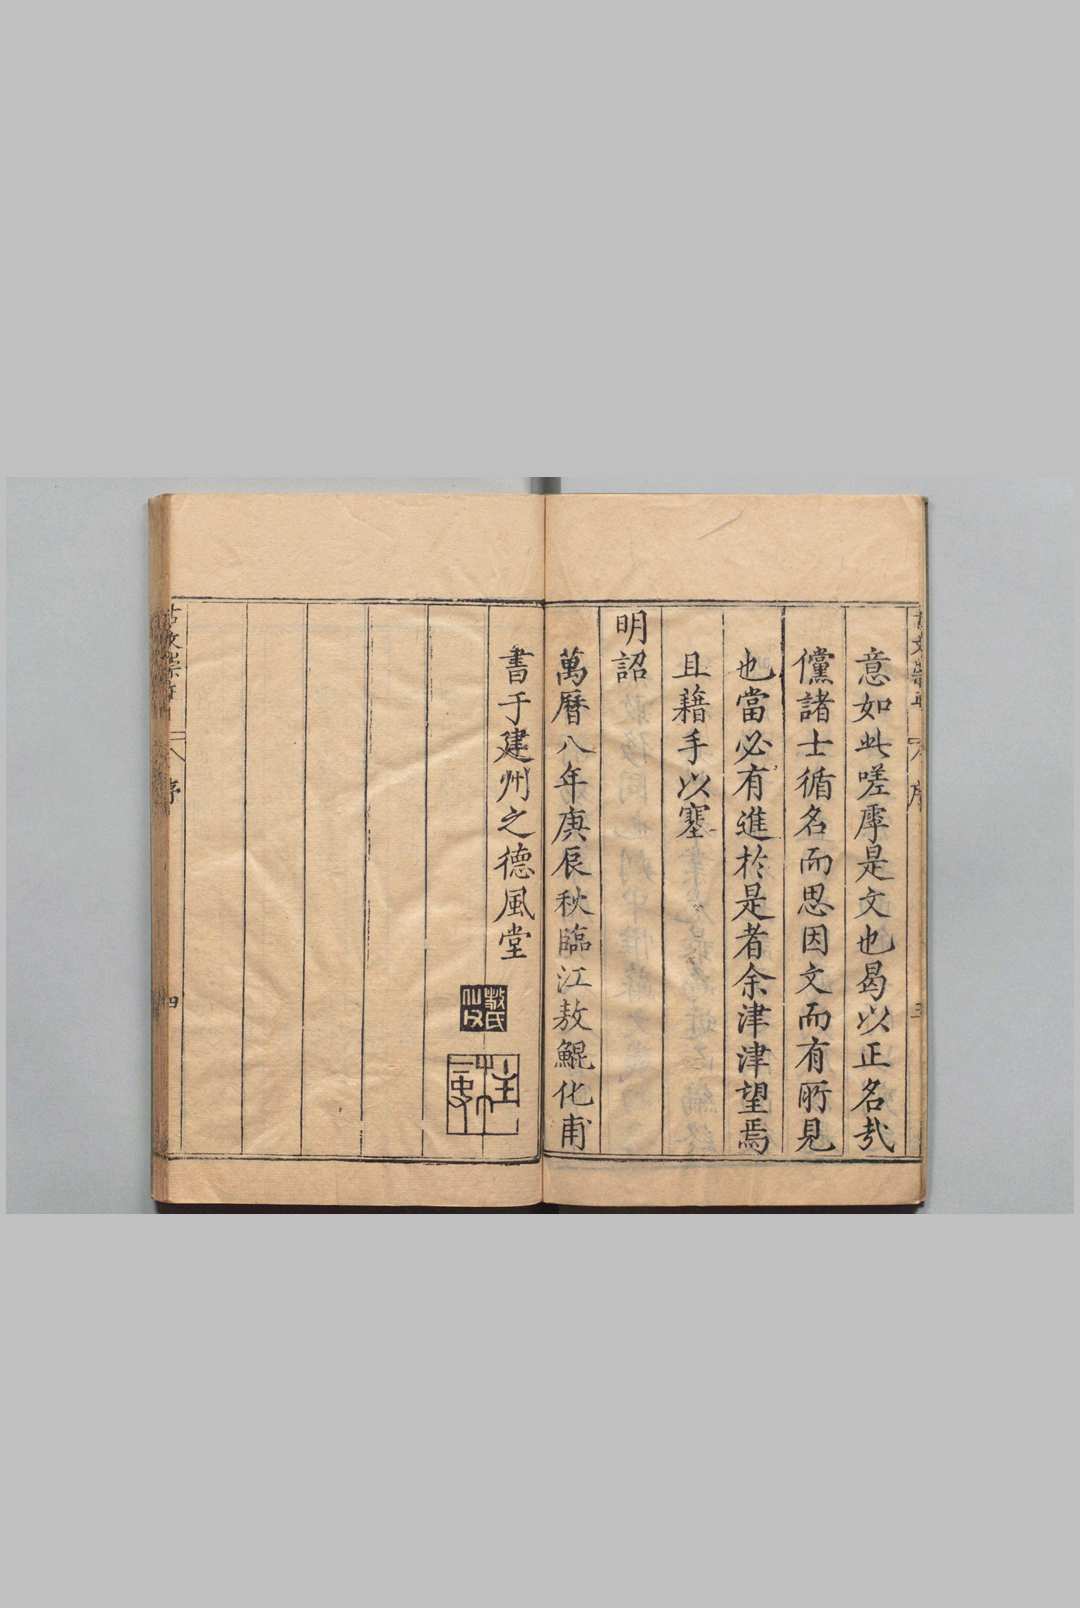 意如此嗟虖是文也曷以正名哉
儻諸士循名而思因文而有所見
也當必有進於是者余津津望焉
且藉手以塞
明詔
萬曆八年庚辰秋臨江敖鯤化甫
書于建州之德風堂
古文崇正
八
序
四